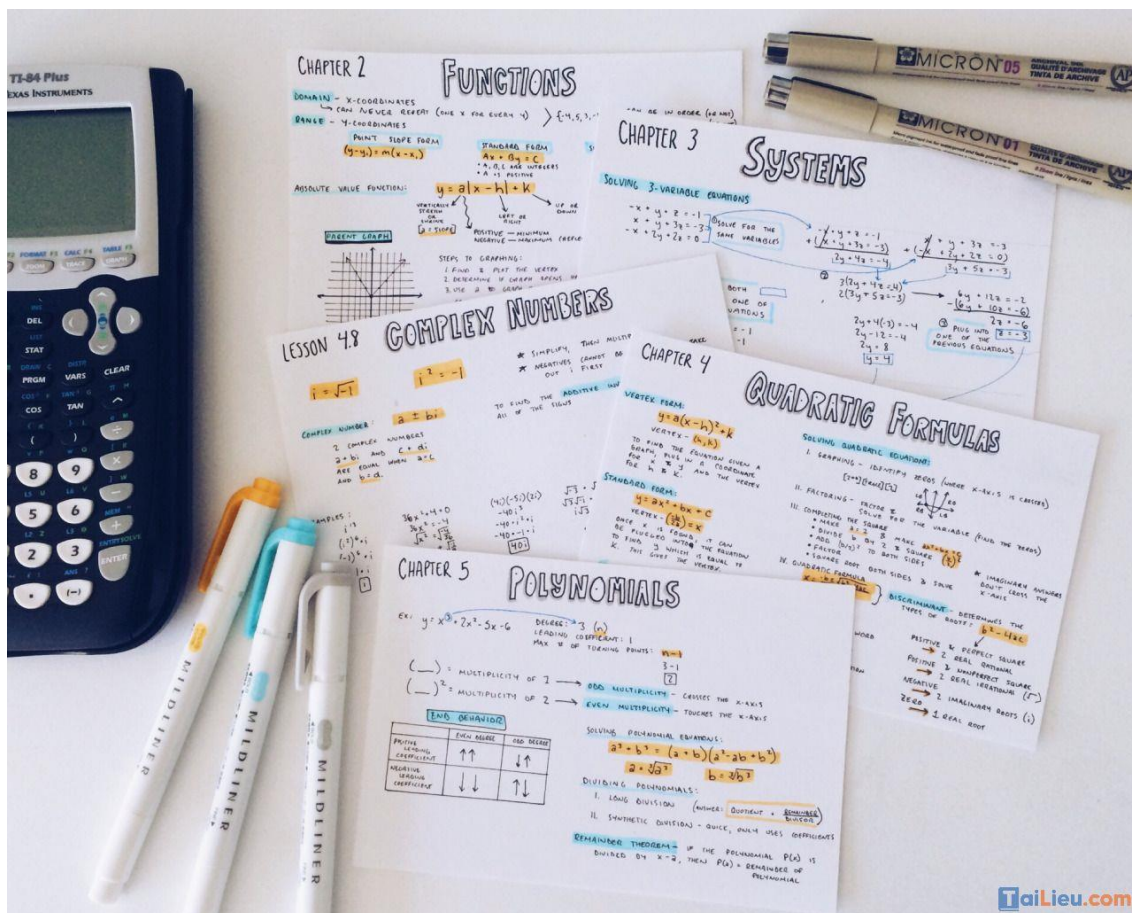 TI-84 Plus
TEXAS INSTRUMENTS
DEL
STAT
PRGM
VARS
CLEAR
COS
TAN
(
)
÷
8
9
×
5
6
−
2
3
+
ENTER
.
(−)
MICRON 05
QUALITÉ D'ARCHIVAGE
TINTA DE ARCHIVE
MICRON 01
QUALITÉ D'ARCHIVAGE
TINTA DE ARCHIVE
CHAPTER 2
FUNCTIONS
DOMAIN - X-COORDINATES
CAN NEVER REPEAT (ONE X FOR EVERY Y)
RANGE - Y-COORDINATES
POINT SLOPE FORM
(y-y₁)=m(x-x₁)
STANDARD FORM
Ax + By = C
• A, B, C ARE INTEGERS
• A IS POSITIVE
ABSOLUTE VALUE FUNCTION:
y = a|x-h|+k
VERTICALLY STRETCH OR SHRINK
a = SLOPE
LEFT OR RIGHT
UP OR DOWN
POSITIVE - MINIMUM
NEGATIVE - MAXIMUM
PARENT GRAPH
STEPS TO GRAPHING:
1. FIND & PLOT THE VERTEX
2. DETERMINE IF GRAPH OPENS
CHAPTER 3
SYSTEMS
SOLVING 3-VARIABLE EQUATIONS
-x + y + z = -1
x + y + 3z = -3
-x + 2y + 2z = 0
① SOLVE FOR THE SAME VARIABLES
-x + y + z = -1
+(x + y + 3z = -3)
2y + 4z = -4
x + y + 3z = -3
+(-x + 2y + 2z = 0)
3y + 5z = -3
②
3(2y + 4z = -4)
2(3y + 5z = -3)
6y + 12z = -2
-(6y + 10z = -6)
2z = -6
z = -3
2y + 4(-3) = -4
2y - 12 = -4
2y = 8
y = 4
③ PLUG INTO ONE OF THE PREVIOUS EQUATIONS
BOTH
ONE OF
LESSON 4.8
COMPLEX NUMBERS
i = √-1
i² = -1
★ SIMPLIFY, THEN
★ NEGATIVES CANNOT BE
OUT i FIRST
a ± bi
TO FIND THE ADDITIVE
ALL OF THE SIGNS
COMPLEX NUMBER:
2 COMPLEX NUMBERS
a + bi AND c + di
ARE EQUAL WHEN a = c
AND b = d.
36x² + 4 = 0
36x² = -4
(4i)(-5i)(2i)
-40i³
-40 · i² · i
-40 · -1 · i
40i
CHAPTER 4
QUADRATIC FORMULAS
VERTEX FORM:
y = a(x-h)² + k
VERTEX - (h, k)
TO FIND THE EQUATION GIVEN A
GRAPH, PLUG IN A COORDINATE
FOR x & y AND THE VERTEX
FOR h & k.
STANDARD FORM:
y = ax² + bx + c
ONCE X IS FOUND, IT CAN
BE PLUGGED INTO THE EQUATION
TO FIND y WHICH IS EQUAL TO
K. THIS GIVES THE VERTEX.
SOLVING QUADRATIC EQUATIONS:
I. GRAPHING - IDENTIFY ZEROS (WHERE X-AXIS IS CROSSED)
II. FACTORING - FACTOR & SOLVE FOR THE VARIABLE (FIND THE ZEROS)
III. COMPLETING THE SQUARE
• ADD (b/2)² TO BOTH SIDES
• FACTOR
• SQUARE ROOT BOTH SIDES & SOLVE
IV. QUADRATIC FORMULA
★ IMAGINARY ANSWERS
DON'T CROSS THE
X-AXIS
DISCRIMINANT - DETERMINES THE
TYPES OF ROOTS:
b² - 4ac
POSITIVE & PERFECT SQUARE
→ 2 REAL RATIONAL
POSITIVE & NONPERFECT SQUARE
→ 2 REAL IRRATIONAL (√)
NEGATIVE
→ 2 IMAGINARY ROOTS (i)
ZERO
→ 1 REAL ROOT
CHAPTER 5
POLYNOMIALS
EX: y = x³ + 2x² - 5x - 6
DEGREE: 3 (n)
LEADING COEFFICIENT: 1
MAX # OF TURNING POINTS: n-1
3-1
2
(__) = MULTIPLICITY OF 1 → ODD MULTIPLICITY - CROSSES THE X-AXIS
(__)² = MULTIPLICITY OF 2 → EVEN MULTIPLICITY - TOUCHES THE X-AXIS
END BEHAVIOR
EVEN DEGREE
ODD DEGREE
POSITIVE LEADING COEFFICIENT
↑↑
↓↑
NEGATIVE LEADING COEFFICIENT
↓↓
↑↓
SOLVING POLYNOMIAL EQUATIONS:
a³ + b³ = (a + b)(a² - ab + b²)
a = ∛a³
b = ∛b³
DIVIDING POLYNOMIALS:
I. LONG DIVISION (ANSWER: QUOTIENT + REMAINDER/DIVISOR)
II. SYNTHETIC DIVISION - QUICK, ONLY USES COEFFICIENTS
REMAINDER THEOREM - IF THE POLYNOMIAL P(x) IS
DIVIDED BY x-a, THEN P(a) = REMAINDER OF
POLYNOMIAL
MILDLINER
MILDLINER
MILDLINER
TaiLieu.com